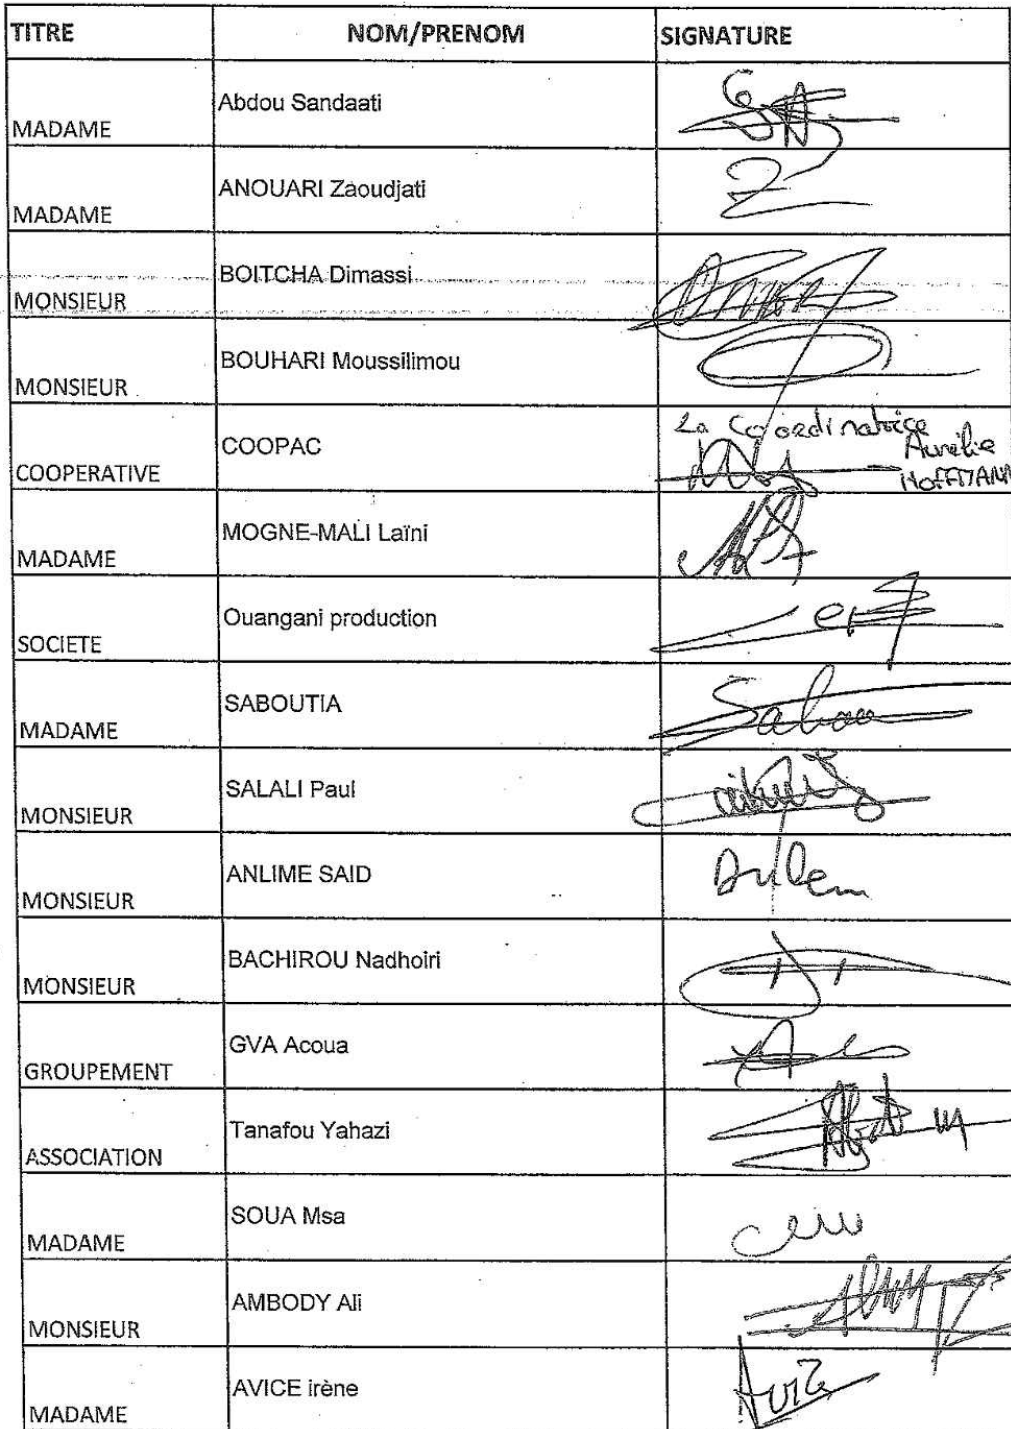 TITRE NOM/PRENOM SIGNATURE
MADAME Abdou Sandaati
MADAME ANOUARI Zaoudjati
MONSIEUR BOITCHA Dimassi
MONSIEUR BOUHARI Moussilimou
COOPERATIVE COOPAC La Coordinatrice Aurélie HOFFMANN
MADAME MOGNE-MALI Laïni
SOCIETE Ouangani production
MADAME SABOUTIA
MONSIEUR SALALI Paul
MONSIEUR ANLIME SAID
MONSIEUR BACHIROU Nadhoiri
GROUPEMENT GVA Acoua
ASSOCIATION Tanafou Yahazi
MADAME SOUA Msa
MONSIEUR AMBODY Ali
MADAME AVICE irène